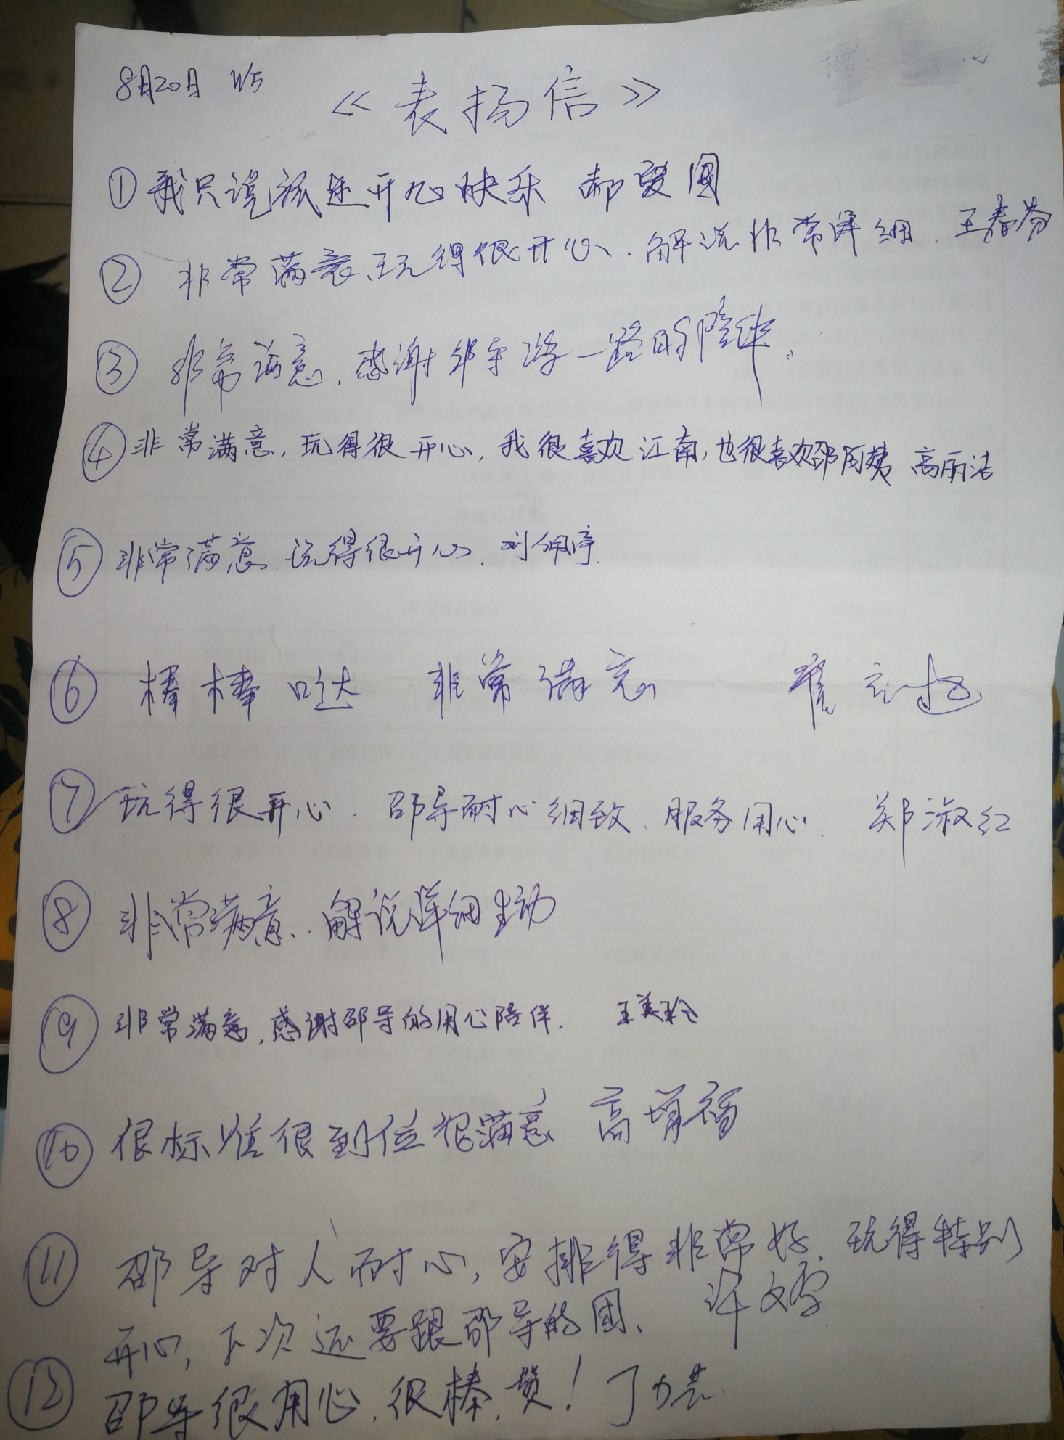 8月20日
《表扬信》
① 我只说 开心快乐 郝
② 非常满意 玩得很开心. 解说非常详细. 王春芳
③ 非常满意. 感谢邵导游一路的陪伴.
④ 非常满意, 玩得很开心, 我很喜欢江南, 也很喜欢邵阿姨 高丽洁
⑤ 非常满意 玩得很开心. 刘佩
⑥ 棒棒哒 非常满意
⑦ 玩得很开心. 邵导耐心细致、服务用心. 郑淑红
⑧ 非常满意. 解说详细生动
⑨ 非常满意, 感谢邵导的用心陪伴. 王美玲
⑩ 很标准很到位很满意 高增福
⑪ 邵导对人耐心, 安排得非常好. 玩得特别
开心, 下次还要跟邵导的团. 许文
⑫ 邵导很用心. 很棒. 赞!